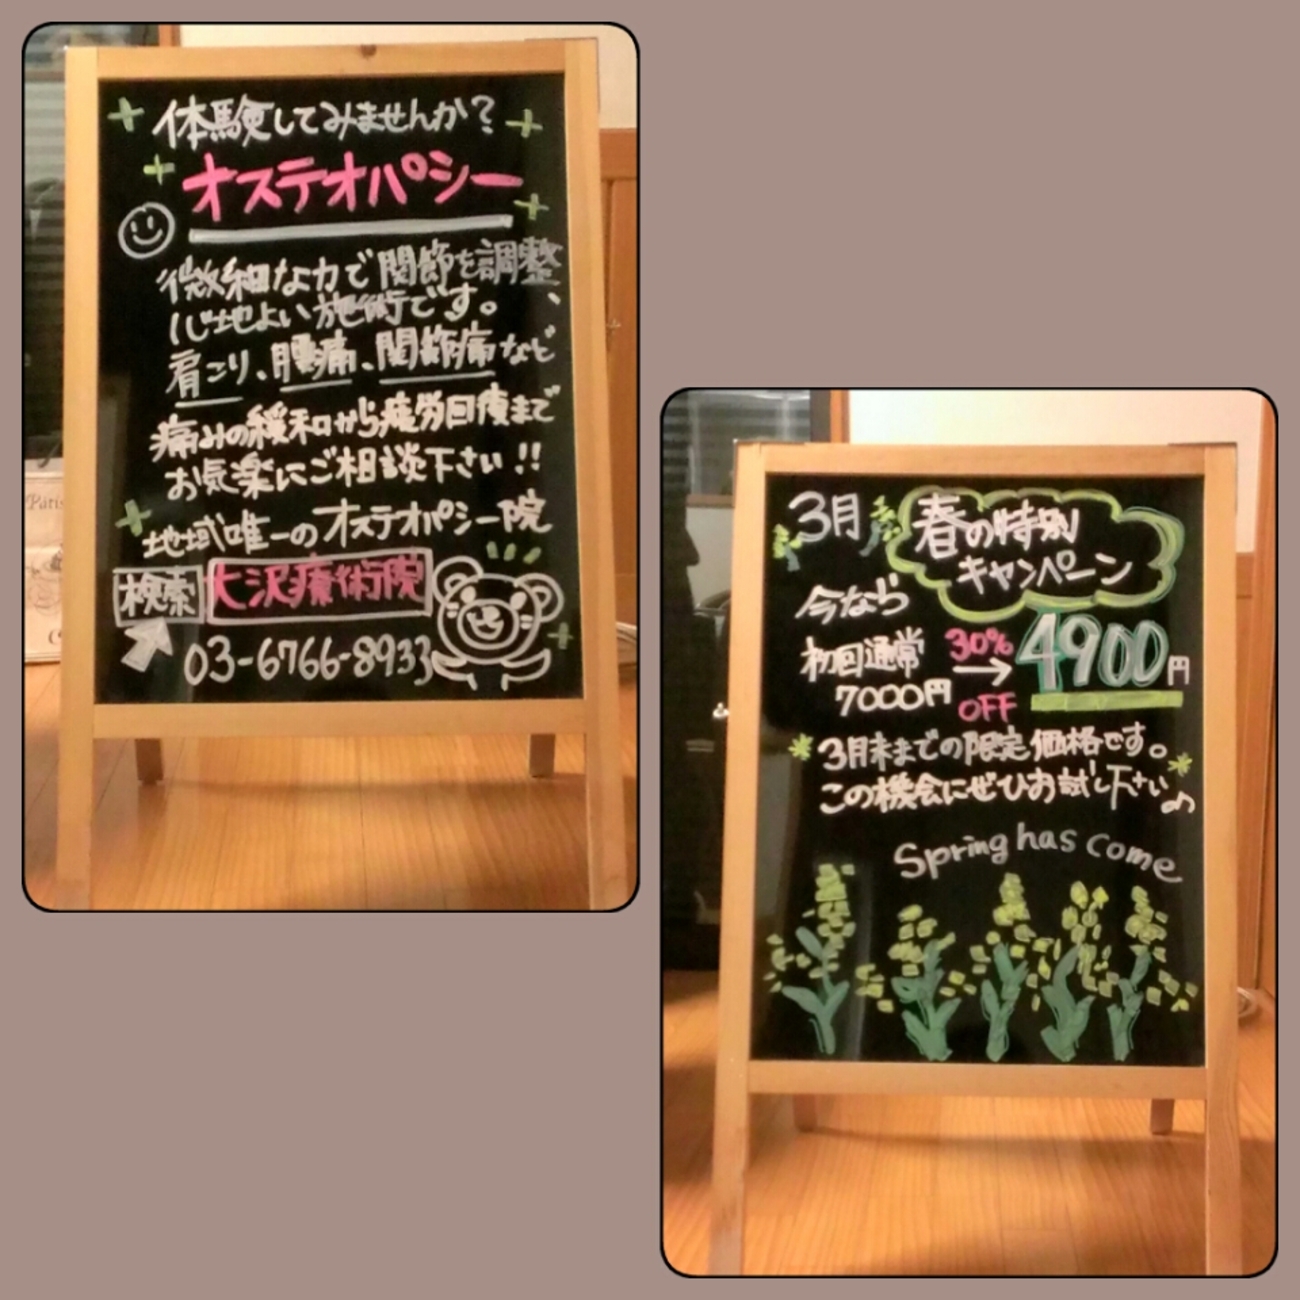 体験してみませんか?
オステオパシー
微細な力で関節を調整、
心地よい施術です。
肩こり、腰痛、関節痛など
痛みの緩和から疲労回復まで
お気楽にご相談下さい!!
地域唯一のオステオパシー院
検索 大沢療術院
03-6766-8933
3月 春の特別
キャンペーン
今なら
初回通常 30% → 4900円
7000円 OFF
3月末までの限定価格です。
この機会にぜひお試し下さい♪
Spring has come